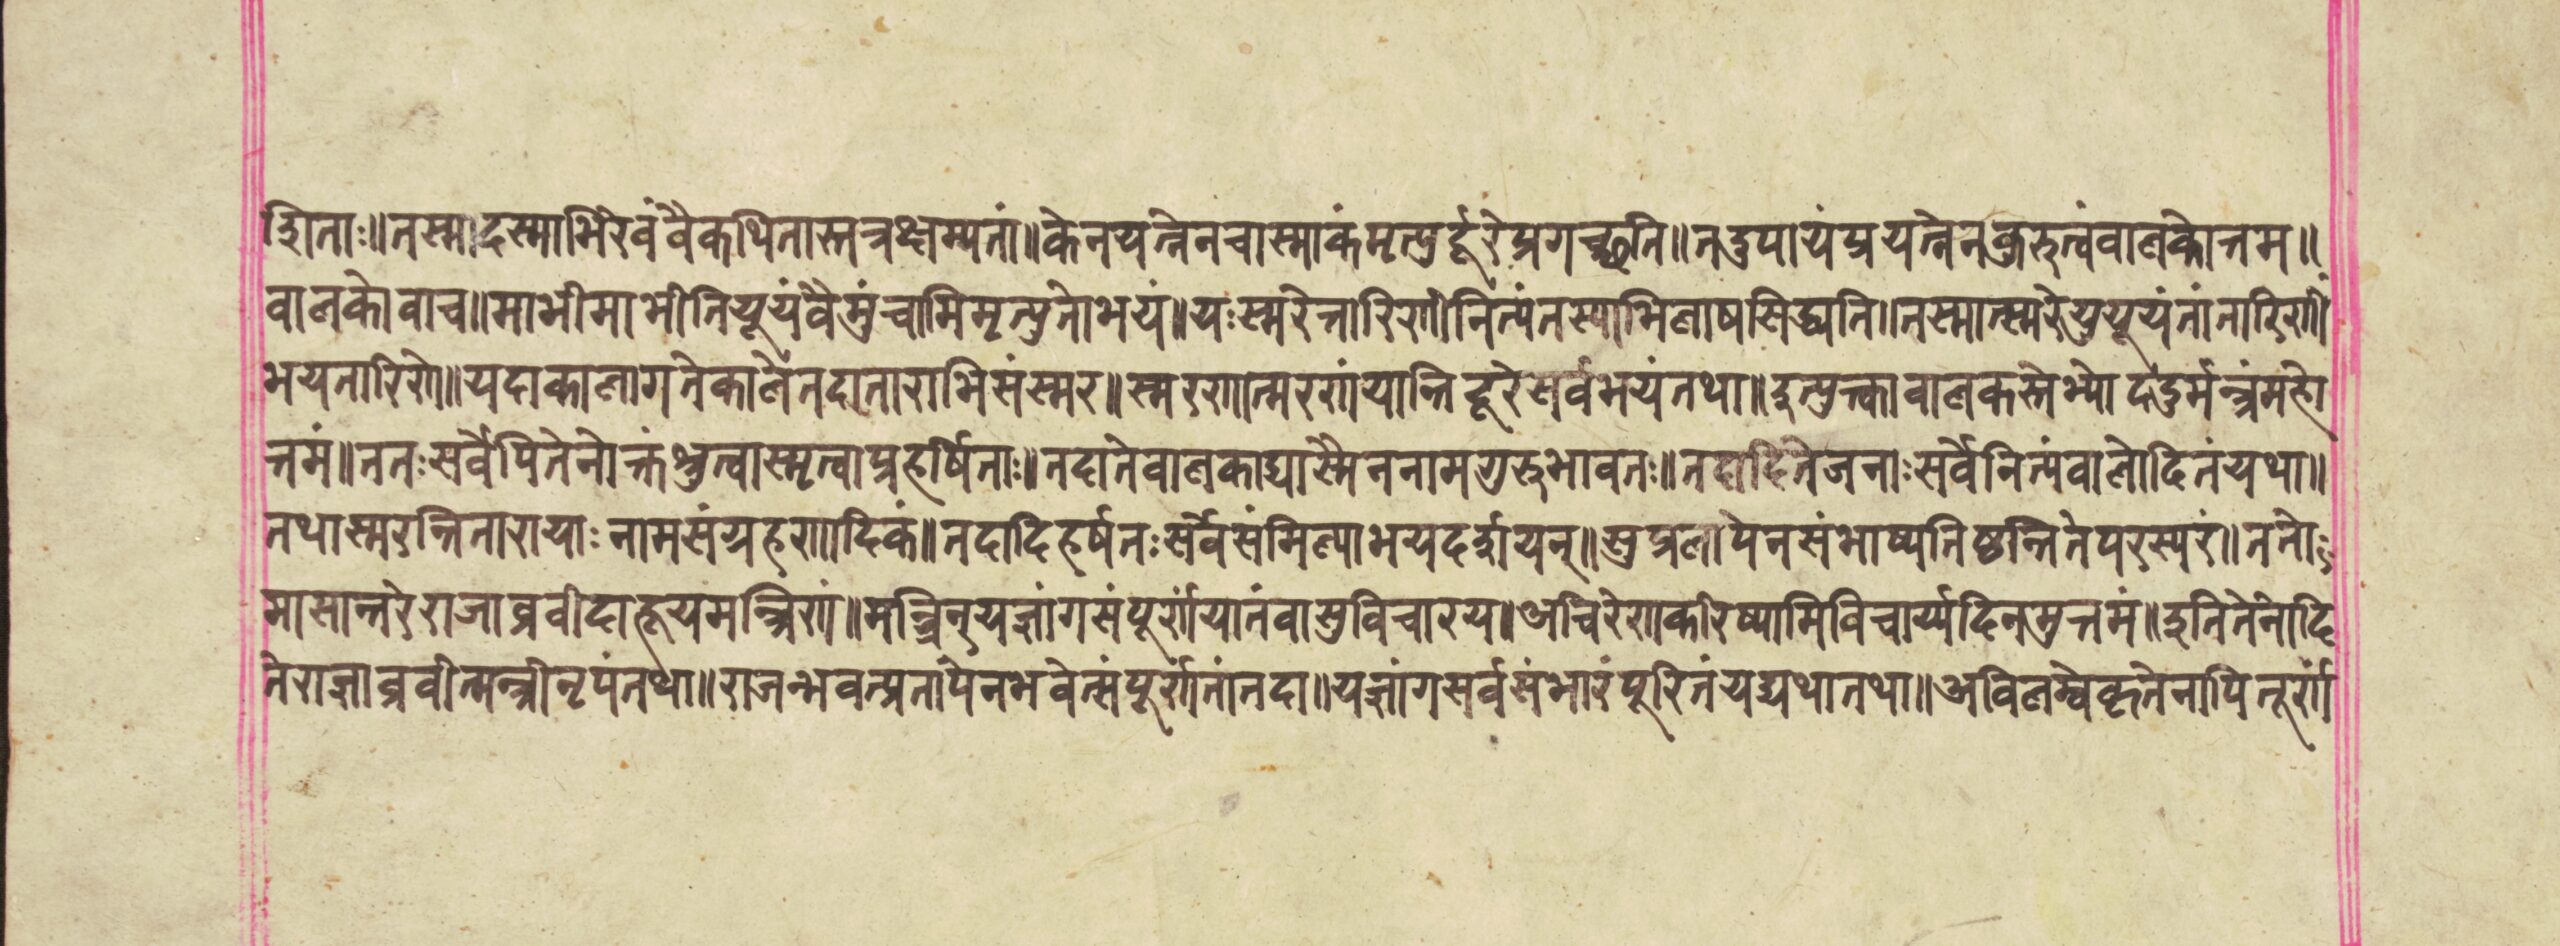 द्विताः॥तस्मादस्माभिरेवंवैकथितास्तत्रक्षम्यतां॥केनयत्नेनचास्माकंमृत्युर्दूरेप्रगच्छति॥तदुपायंप्रयत्नेनकुरुत्वंवालकोत्तम॥
वालकोवाच॥माभीमाभीतियूयंवैमुंचामिमृत्युतोभयं॥यःस्मरेत्तारिणींनित्यंतस्याभिलाषसिद्ध्यति॥तस्मात्स्मरेयुयूयंतांतारिणीं
भयतारिणे॥यदाकालागतेकालेतदाताराभिसंस्मर॥स्मरणात्मरणंयान्तिदूरेसर्वभयंतथा॥इत्युत्त्कावालकस्तेभ्योददुर्मन्त्रंमहो
त्तमं॥ततःसर्वेपितेनोक्तंश्रुत्वास्मृत्वाप्रहर्षिताः॥तदातेवालकाद्यास्मैननामगुरुभावतः॥तदादितेजनाःसर्वेनित्यंवालोदितंयथा॥
तथास्मरन्तितारायाःनामसंग्रहणादिकं॥तदादिहर्षतःसर्वेसंमिल्याभयदर्शयन्॥सुप्रलापेनसंभाष्यतिष्ठन्तितेपरस्परं॥ततो
मासान्तरेराजाब्रवीदाहूयमन्त्रिणं॥मन्त्रिन्यज्ञांगसंपूर्णंयातंवासुविचारय॥अचिरेणकरिष्यामिविचार्य्यदिनमुत्तमं॥इतितेनोदि
तेराज्ञाब्रवीत्मन्त्रीनृपंतथा॥राजन्भवत्प्रतापेनभवेत्संपूर्णतांतदा॥यज्ञांगसर्वसंभारंपूरितंयद्यथातथा॥अविलम्वेकृतेनापितूर्णं